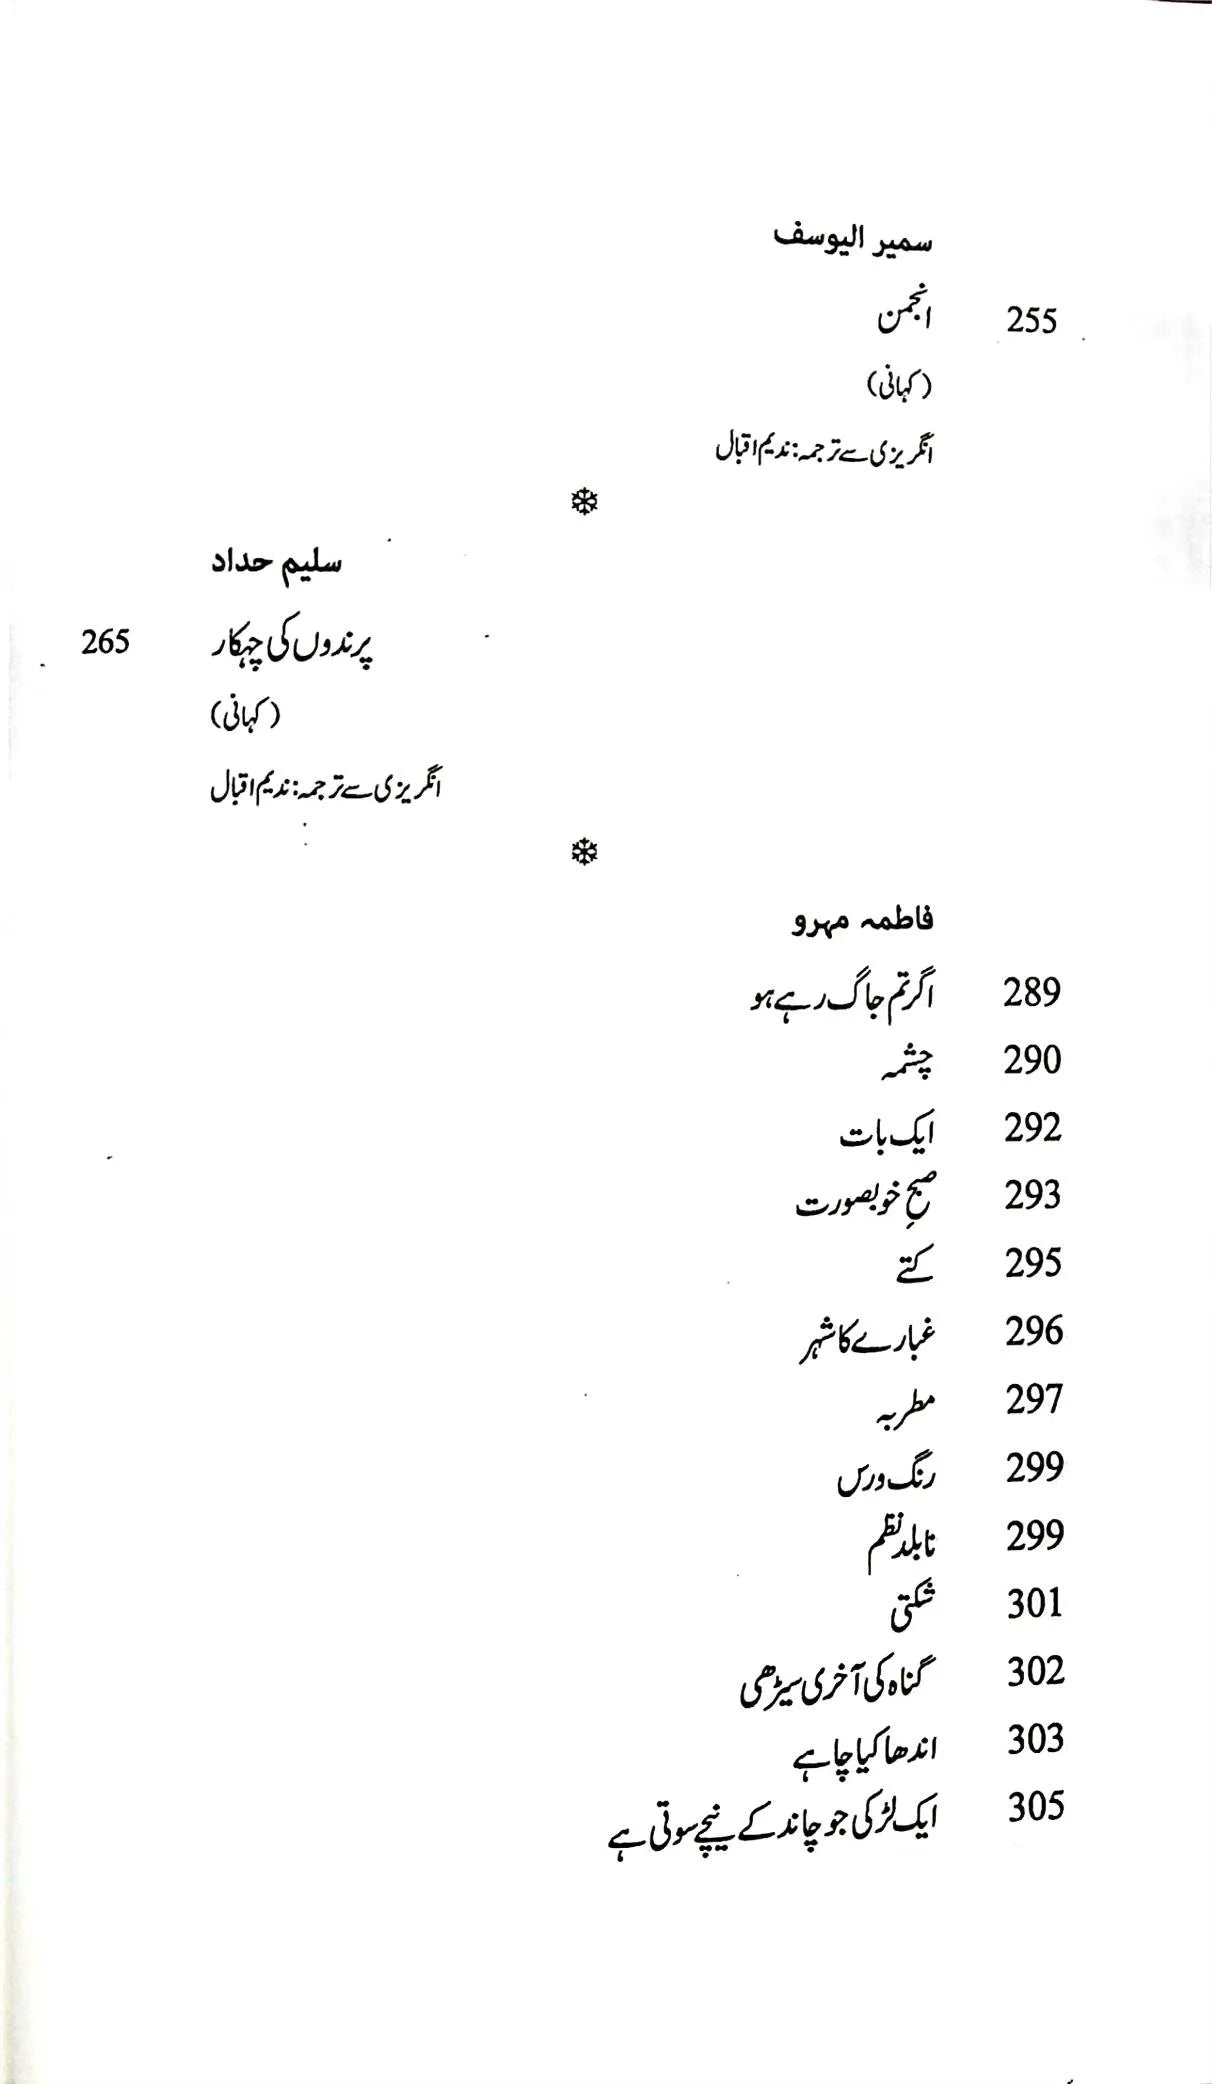 سمیر الیوسف
255 انجمن
(کہانی)
انگریزی سے ترجمہ: ندیم اقبال
سلیم حداد
پرندوں کی چہکار 265
(کہانی)
انگریزی سے ترجمہ: ندیم اقبال
فاطمہ مہرو
289 اگر تم جاگ رہے ہو
290 چشمہ
292 ایک بات
293 صبحِ خوبصورت
295 کتے
296 غبارے کا شہر
297 مطربہ
299 رنگ ورس
299 نابلد نظم
301 شکتی
302 گناہ کی آخری سیڑھی
303 اندھا کیا چاہے
305 ایک لڑکی جو چاند کے نیچے سوتی ہے